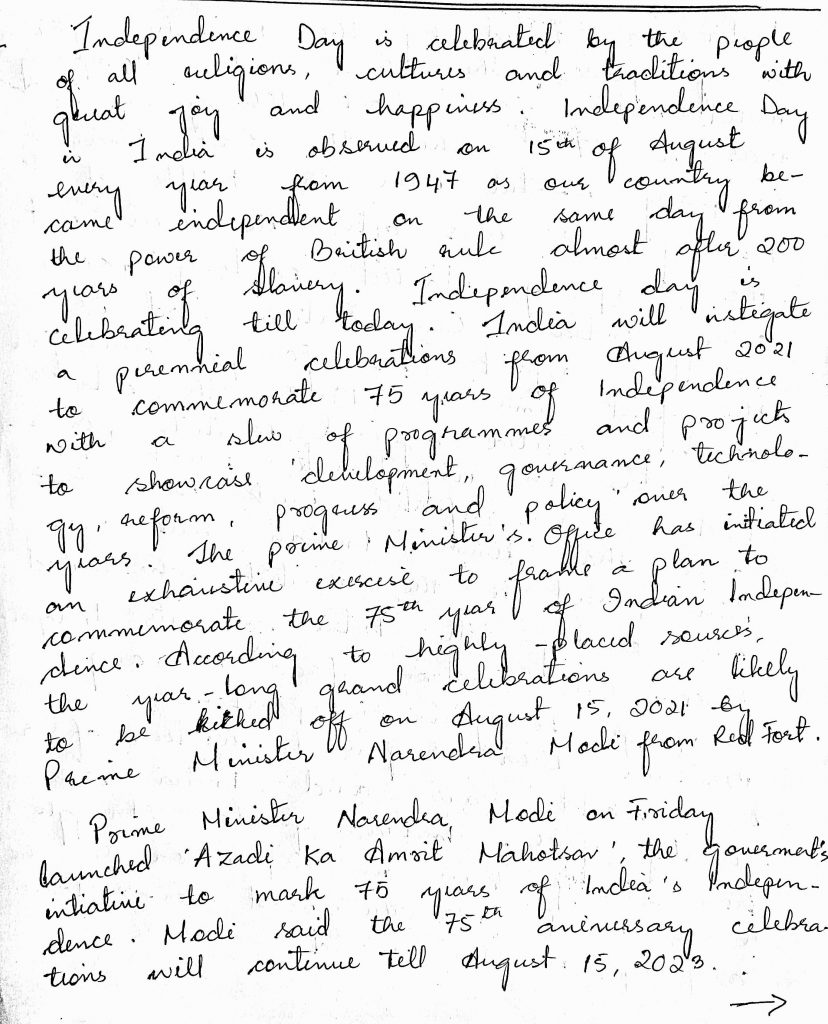 Independence Day is celebrated by the people
of all religions, cultures and traditions with
great joy and happiness. Independence Day
in India is observed on 15th of August
every year from 1947 as our country be-
came endependent on the same day from
the power of British rule almost after 200
years of slavery. Independence day is
celebrating till today. India will istegate
a perennial celebrations from August 2021
to commemorate 75 years of Independence
with a slew of programmes and projects
to showcase development, governance, technolo-
gy, reform, progress and policy over the
years. The prime Minister's. Office has initiated
an exhaustive exercise to frame a plan to
commemorate the 75th year of Indian Indepen-
dence. According to highly-placed sources,
the year-long grand celebrations are likely
to be kicked off on August 15, 2021 by
Prime Minister Narendra Modi from Red Fort.
Prime Minister Narendra Modi on Friday
launched 'Azadi Ka Amrit Mahotsav', the goverment's
intiative to mark 75 years of India's Indepen-
dence. Modi said the 75th aniversary celebra-
tions will continue till August 15, 2023.
→